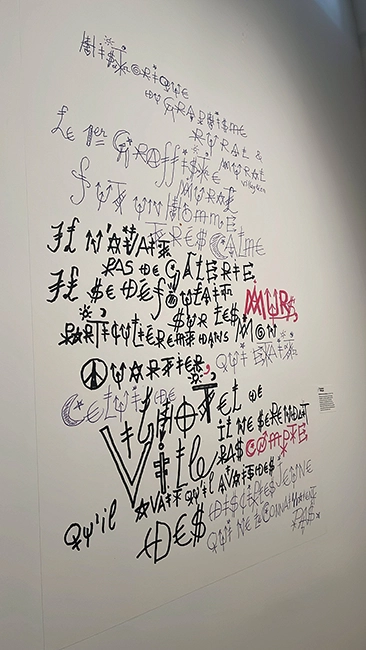 HISTORIQUE
DU GRAFFISME
RURAL &
Le 1er GRAFFISTE MURAL
villageois
MURAL
fUT UN HOMME
TRES CALME
Il N'AVAIT
PAS DE GALERIE
Il SE DEfOULAIT
SUR LES MURS,
PARTICULIEREMENT DANS MON
QUARTIER, QUI ETAIT
CELUI DE
L'HOTEL DE
VILLE
IL NE SE RENDAIT
PAS COMPTE
Qu'il AVAIT QU'IL AVAIT DES
DES DISCIPLES JEUNE
QU'IL NE CONNAISSAIT
PAS.